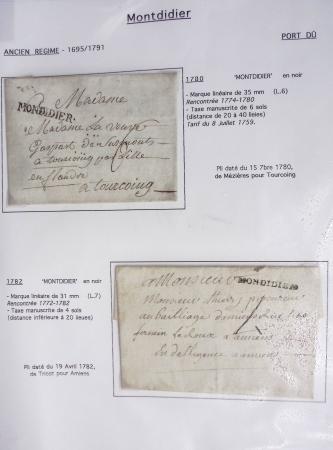 Montdidier
ANCIEN REGIME - 1695/1791
PORT DÛ
1780 'MONTDIDIER' en noir
- Marque linéaire de 35 mm (L.6)
Rencontrée 1774-1780
- Taxe manuscrite de 6 sols
(distance de 20 à 40 lieues)
Tarif du 8 juillet 1759.
Pli daté du 15 7bre 1780,
de Mézières pour Tourcoing
MONDIDIER
Madame
Madame La veuve
a tourcoing par Lille
en flandre
a tourcoing
1782 'MONTDIDIER' en noir
- Marque linéaire de 31 mm (L.7)
Rencontrée 1772-1782
- Taxe manuscrite de 4 sols
(distance inférieure à 20 lieues)
Pli daté du 19 Avril 1782,
de Tricot pour Amiens
MONDIDIER
a Monsieur
Monsieur
au Bailliage
a amiens
a amiens